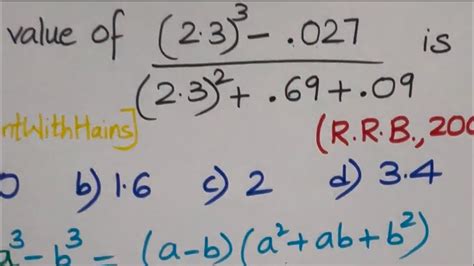 value of (2.3)³ - .027 is
(2.3)² + .69 + .09
ntWithHains]
(R.R.B., 200
0 b) 1.6 c) 2 d) 3.4
a³ - b³ = (a-b)(a² + ab + b²)